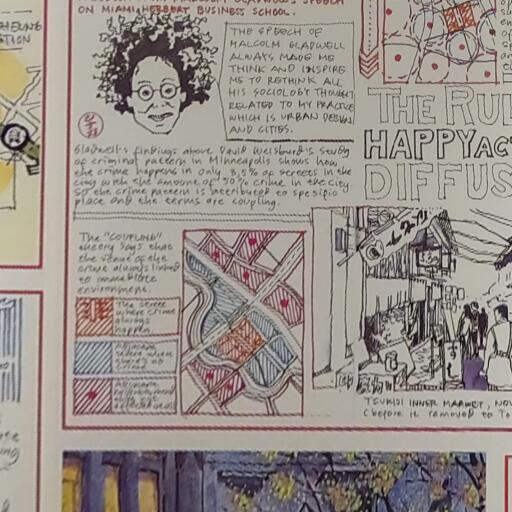 MALCOLM GLADWELL'S SPEECH
ON MIAMI HERBERT BUSINESS SCHOOL.
THE SPEECH OF
MALCOLM GLADWELL
ALWAYS MADE ME
THINK AND INSPIRE
ME TO RETHINK ALL
HIS SOCIOLOGY THOUGHT
RELATED TO MY PRACTICE
WHICH IS URBAN DESIGN
AND CITIES.
Gladwell's findings above David Weisburd's study
of criminal pattern in Minneapolis shows how
the crime happens in only 3,5% of streets in the
city with the amount of 50% crime in the city.
So the crime pattern is attributed to specific
place and the terms are coupling.
The "COUPLING"
theory says that
the venue of the
crime always linked
to immediate
environment.
The street
where crime
always
happen
Adjacent
street where
there's no
crime
Adjacent
THE RUL
HAPPY AC
DIFFUS
TSUKIJI INNER MARKET, NOV
(before it removed to To